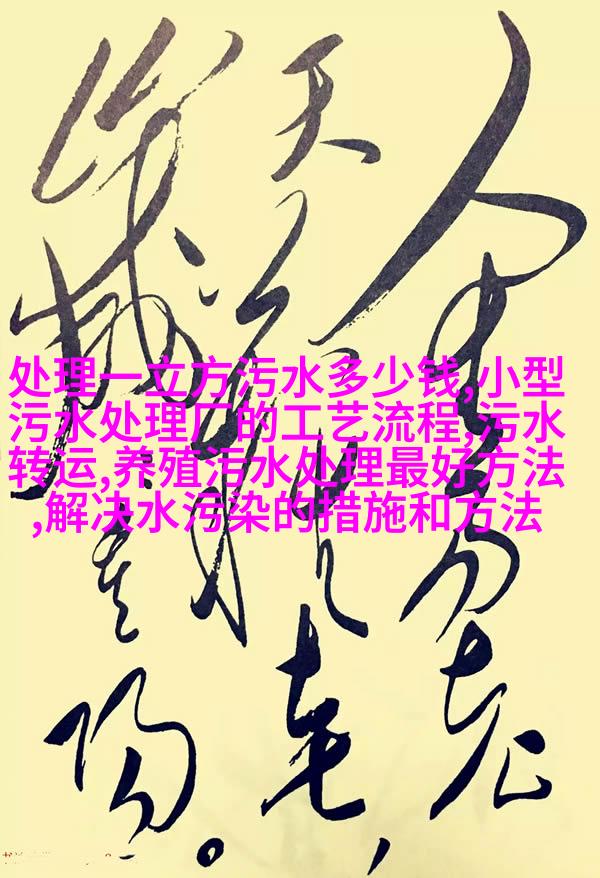 人生易老
天難老，
歲歲重陽。
处理一立方污水多少钱,小型
污水处理厂的工艺流程,污水
转运,养殖污水处理最好方法
,解决水污染的措施和方法